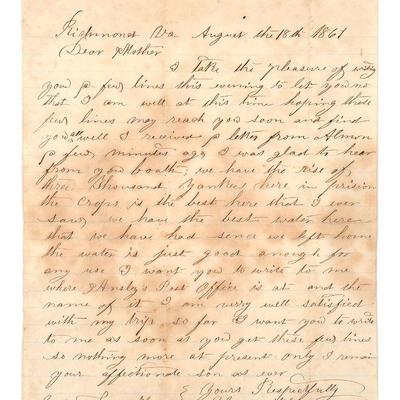 Richmond Va August the 18th 1861
Dear Mother
I Take the pleasure of writing
you a few lines this evening to let you no
that I am well at this time hoping these
few lines may reach you soon and find
you all well I received a letter from Almon
a few minutes ago I was glad to hear
from you boath, we have the rise of
three thousand Yankees here in prision
the crops is the best here that I ever
saw, we have the best water here
that we have had sence we left home
the water is just good anough for
any use I want you to write to me
where Ansly's Post Office is at and the
name of it I am very well satisfied
with my trip so far I want you to write
to me as soon as you get these few lines
so nothing more at present only I remain
your affectionate son as ever
Yours Respectfully